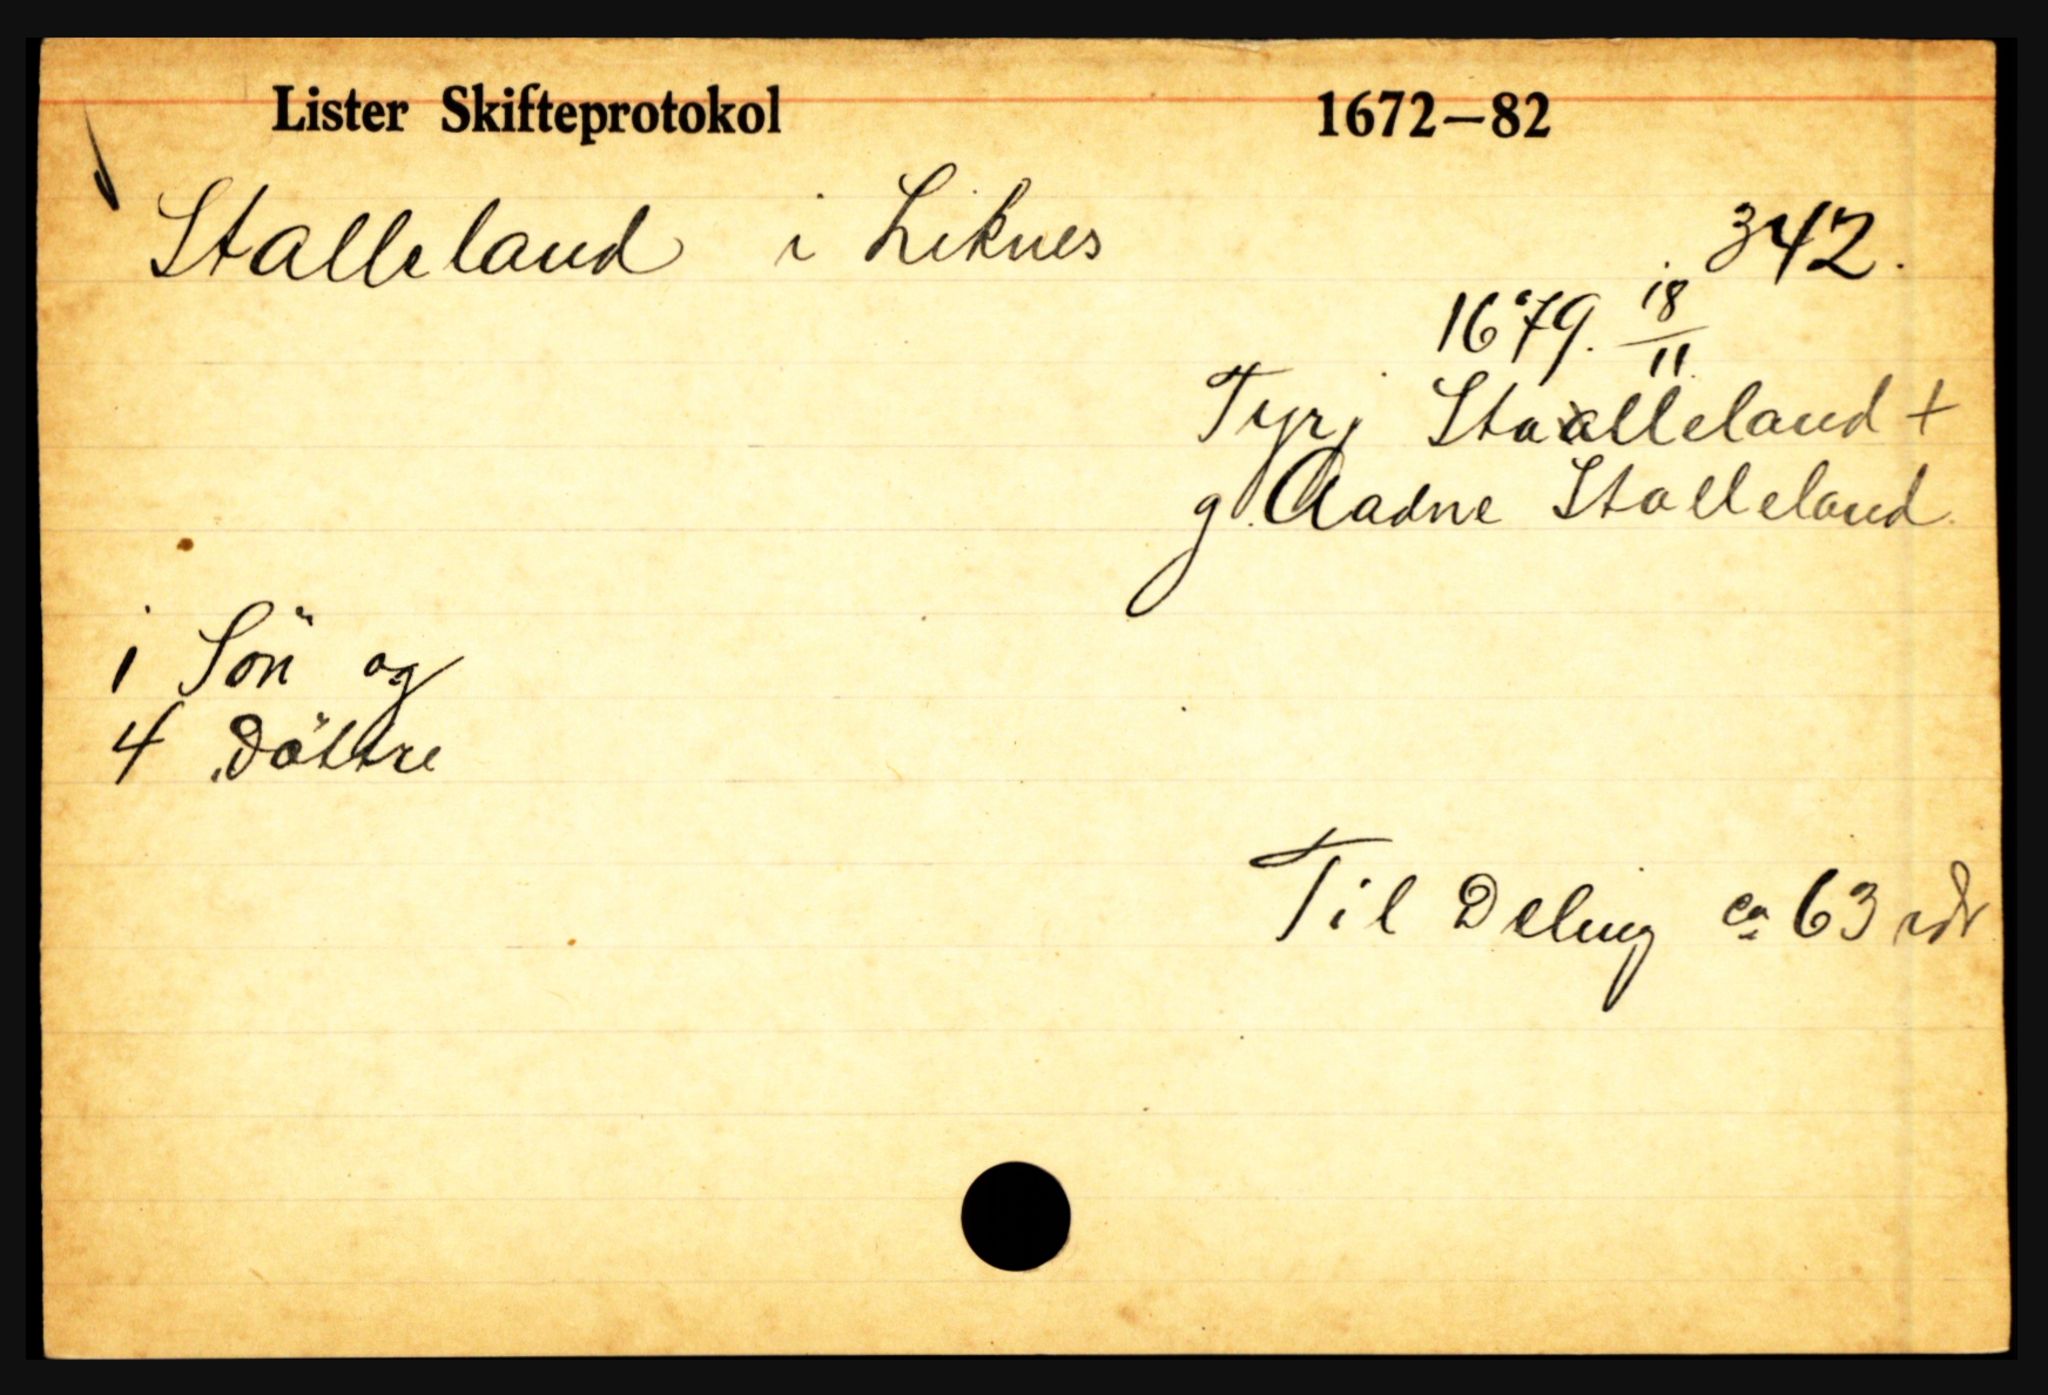 Lister Skifteprotokol 1672–82
Stalleland i Liknes
342.
1679. 18/11
Tyri Staalleland +
g. Aadne Stalleland
1 Sön og
4 Döttre
Til Deling ca 63 rdr